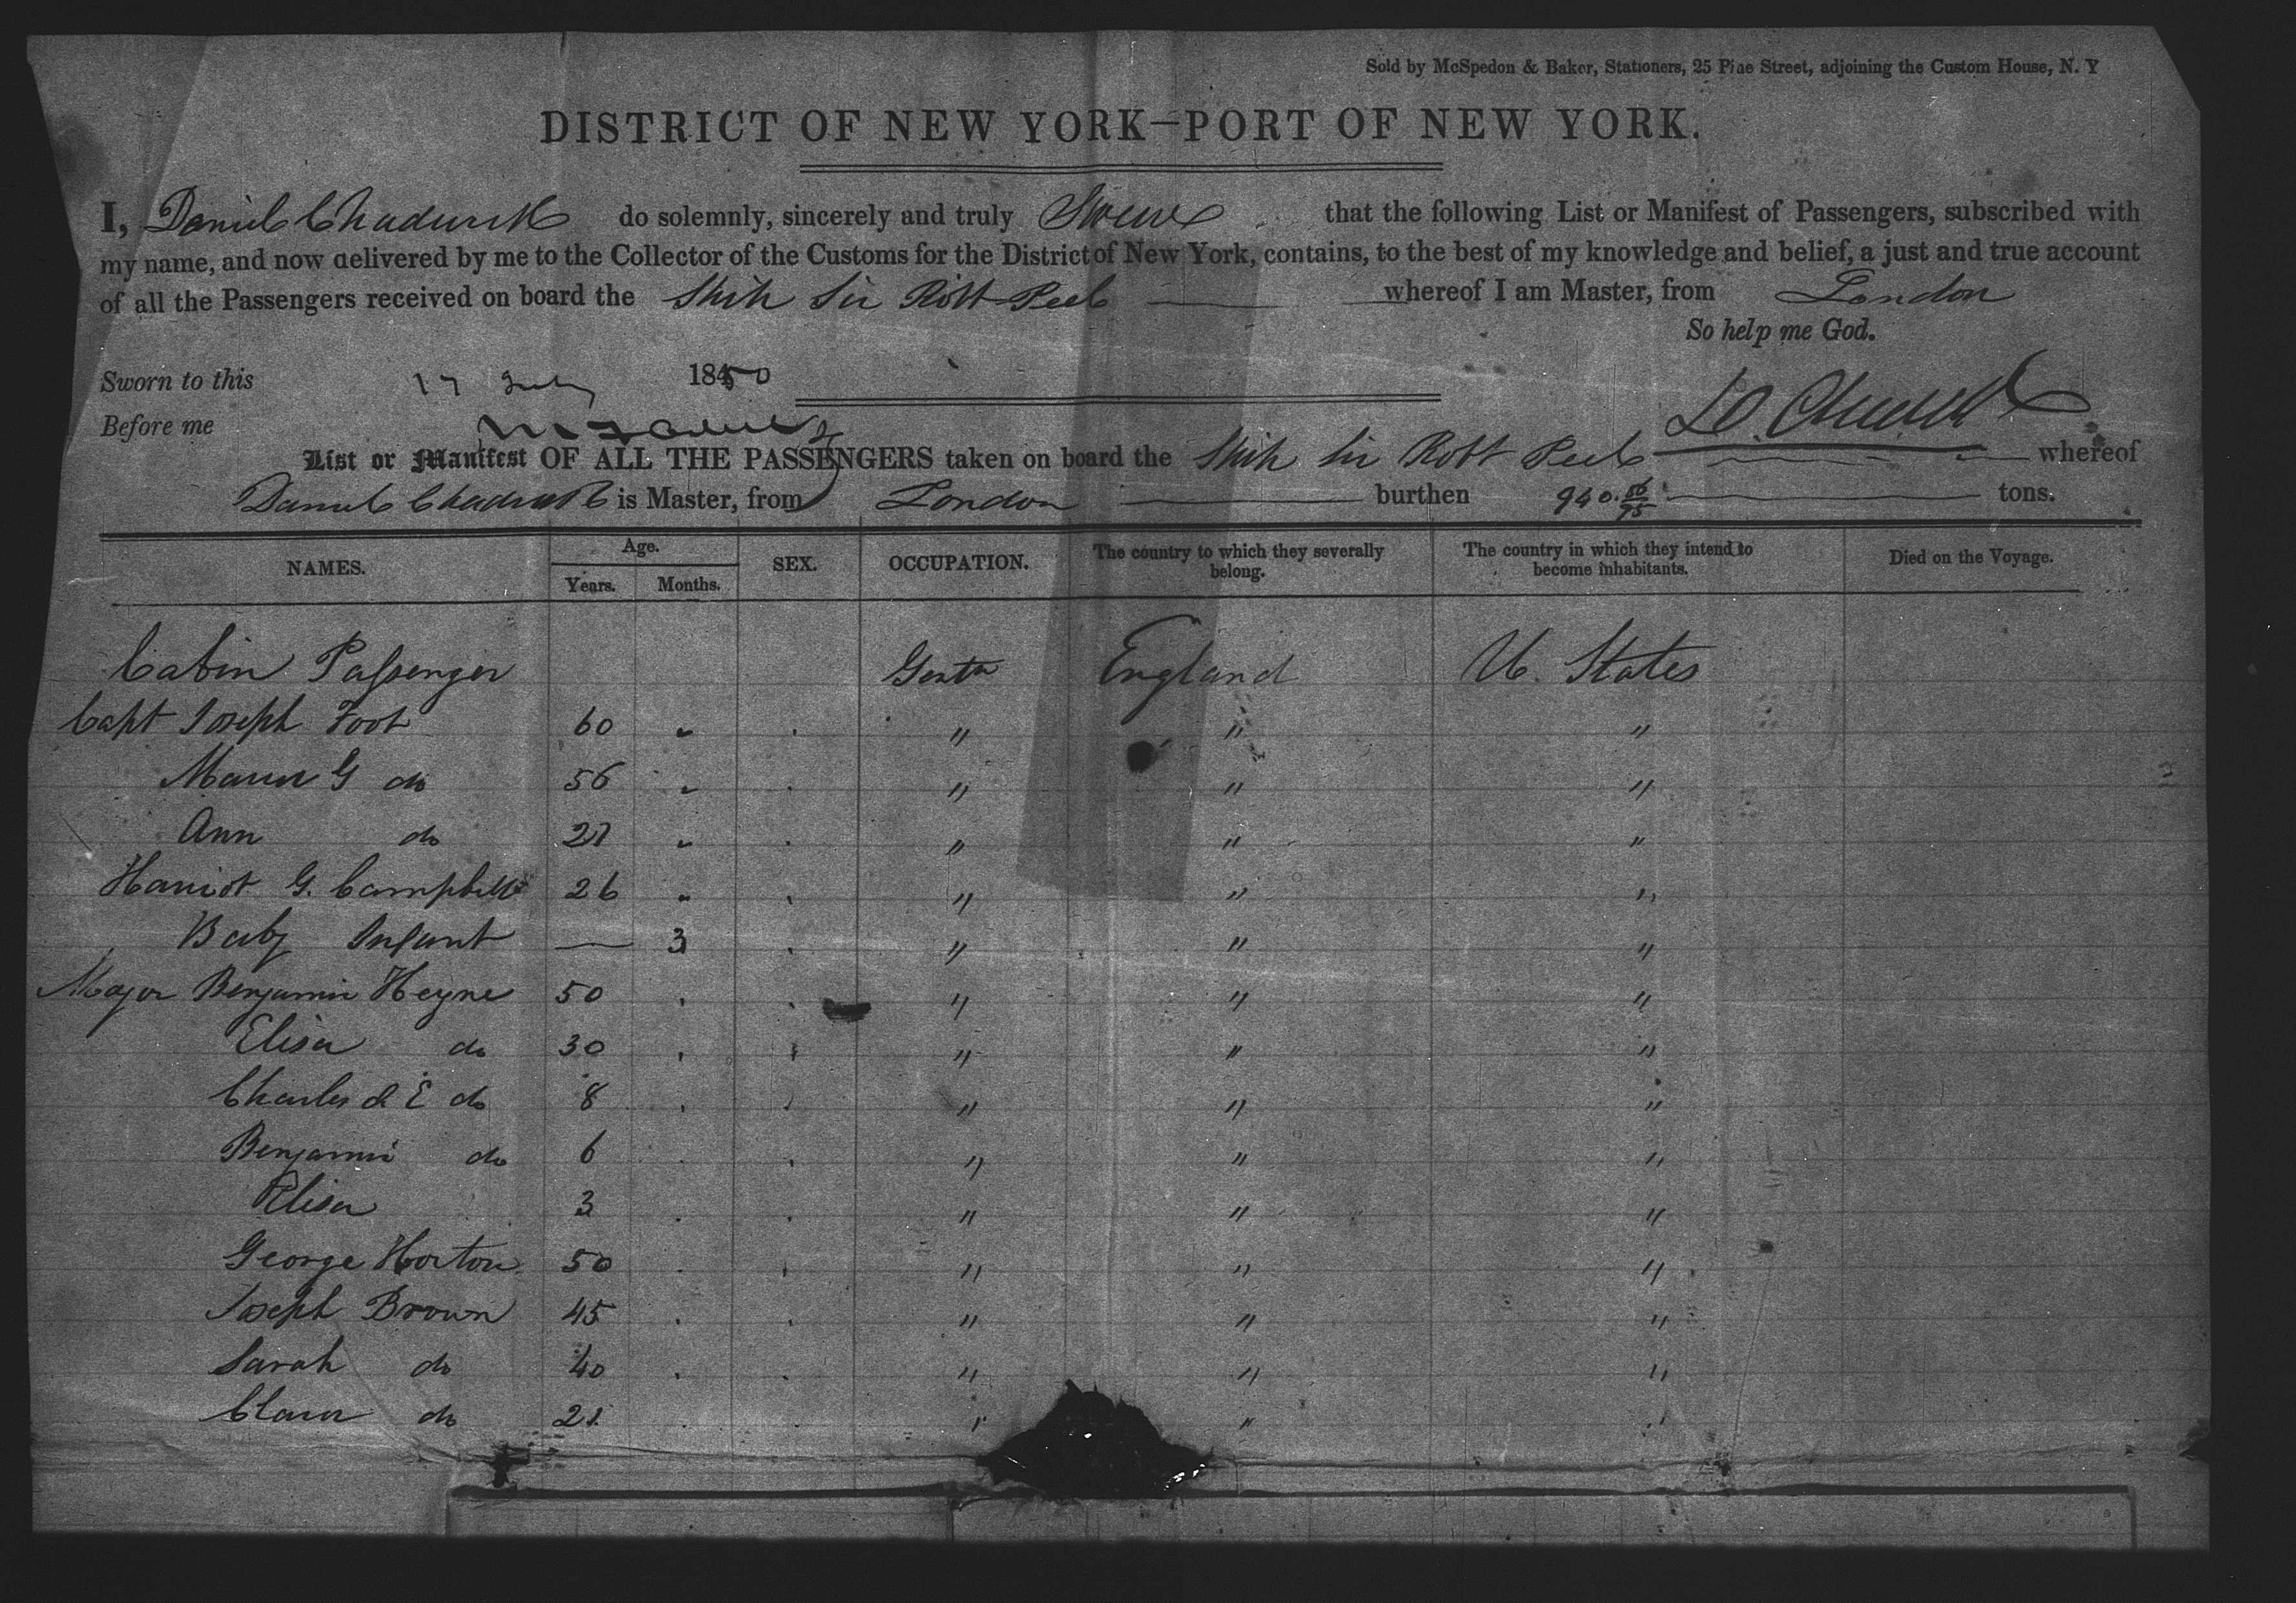 Sold by McSpedon & Baker, Stationers, 25 Pine Street, adjoining the Custom House, N. Y
DISTRICT OF NEW YORK—PORT OF NEW YORK.
I, Daniel Chadwick do solemnly, sincerely and truly Swear that the following List or Manifest of Passengers, subscribed with
my name, and now delivered by me to the Collector of the Customs for the District of New York, contains, to the best of my knowledge and belief, a just and true account
of all the Passengers received on board the Ship Sir Robt Peel whereof I am Master, from London
So help me God.
Sworn to this 17 July 1850
Before me
D. Chadwick
List or Manifest OF ALL THE PASSENGERS taken on board the Ship Sir Robt Peel whereof
Daniel Chadwick is Master, from London burthen 940 56/95 tons.
NAMES. Age. Years. Months. SEX. OCCUPATION. The country to which they severally belong. The country in which they intend to become inhabitants. Died on the Voyage.
Cabin Passenger England U. States
Capt Joseph Foot 60 " " " "
Maria G do 56 " " " "
Ann do 27 " " " "
Harriot G. Campbell 26 " " " "
Baby Infant — 3 " " "
Major Benjamin Heyne 50 " " "
Elisa do 30 " " "
Charles d E do 8 " " "
Benjamin do 6 " " "
Elisa 3 " " "
George Horton 50 " " "
Joseph Brown 45 " " "
Sarah do 40 " " "
Clara do 21 " " "